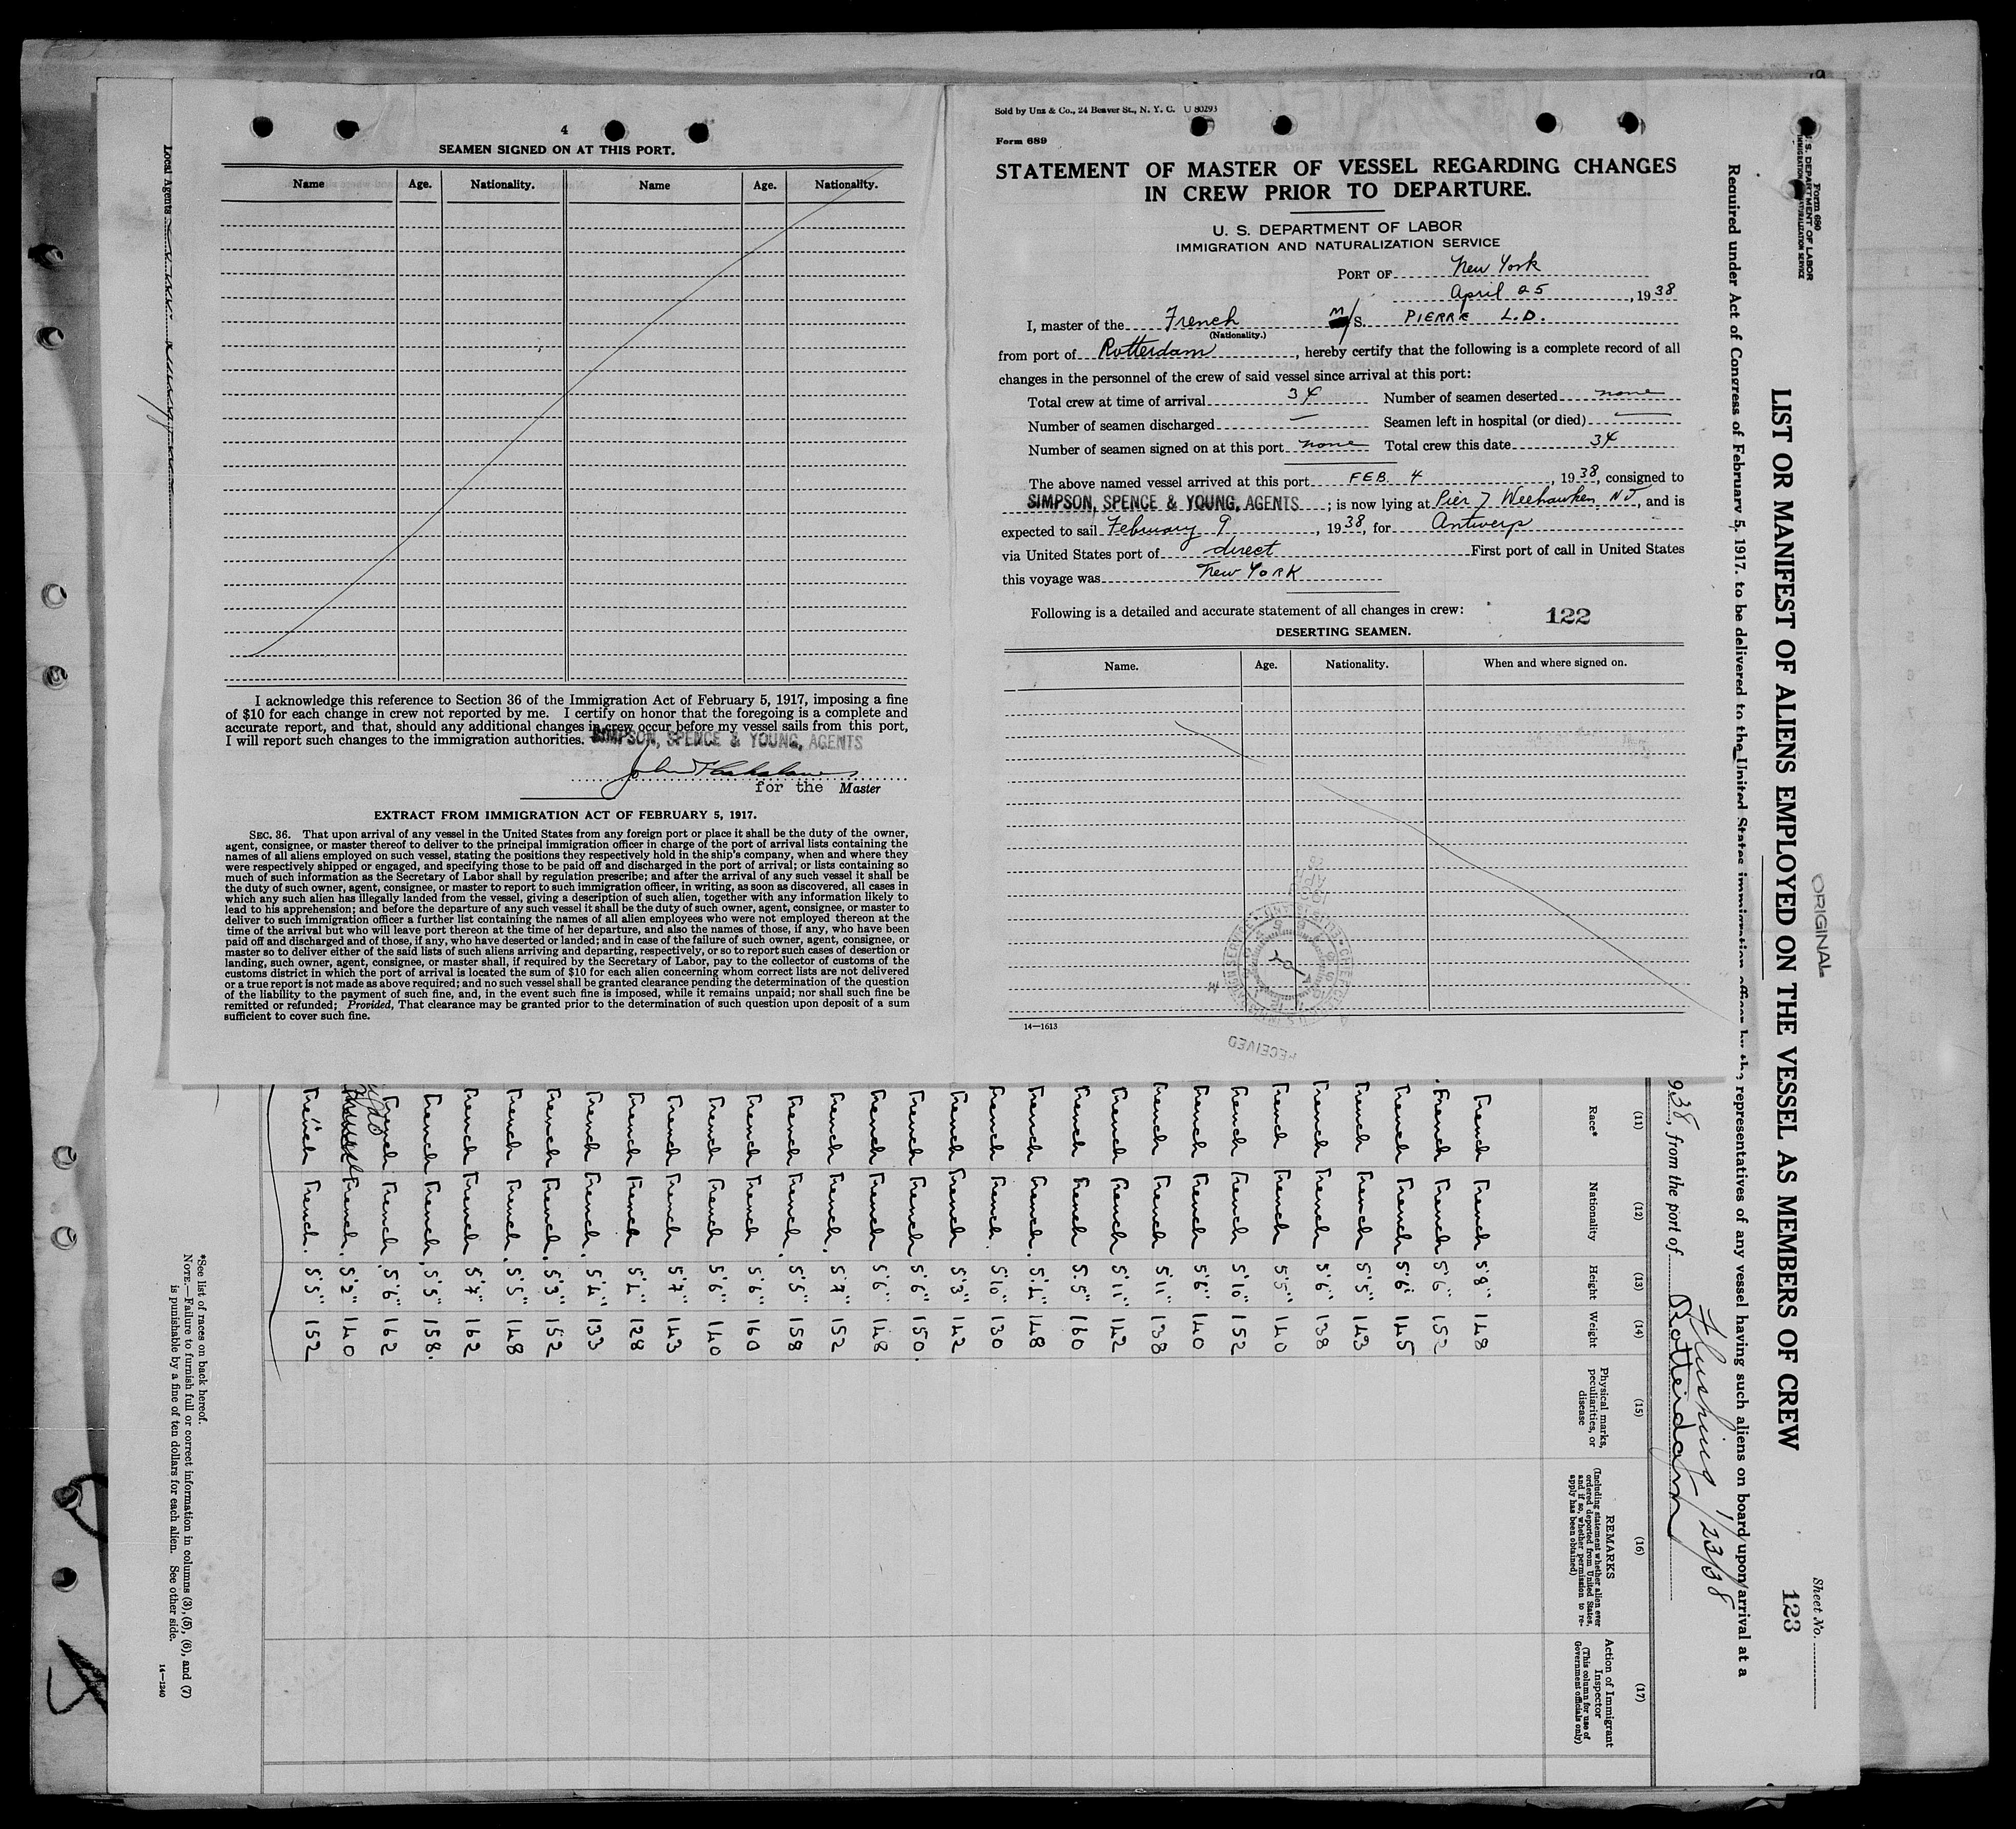 4
SEAMEN SIGNED ON AT THIS PORT.
Name Age. Nationality. Name Age. Nationality.
I acknowledge this reference to Section 36 of the Immigration Act of February 5, 1917, imposing a fine
of $10 for each change in crew not reported by me. I certify on honor that the foregoing is a complete and
accurate report, and that, should any additional changes in crew occur before my vessel sails from this port,
I will report such changes to the immigration authorities. SIMPSON, SPENCE & YOUNG, AGENTS
for the Master
EXTRACT FROM IMMIGRATION ACT OF FEBRUARY 5, 1917.
SEC. 36. That upon arrival of any vessel in the United States from any foreign port or place it shall be the duty of the owner,
agent, consignee, or master thereof to deliver to the principal immigration officer in charge of the port of arrival lists containing the
names of all aliens employed on such vessel, stating the positions they respectively hold in the ship's company, when and where they
were respectively shipped or engaged, and specifying those to be paid off and discharged in the port of arrival; or lists containing so
much of such information as the Secretary of Labor shall by regulation prescribe; and after the arrival of any such vessel it shall be
the duty of such owner, agent, consignee, or master to report to such immigration officer, in writing, as soon as discovered, all cases in
which any such alien has illegally landed from the vessel, giving a description of such alien, together with any information likely to
lead to his apprehension; and before the departure of any such vessel it shall be the duty of such owner, agent, consignee, or master to
deliver to such immigration officer a further list containing the names of all alien employees who were not employed thereon at the
time of the arrival but who will leave port thereon at the time of her departure, and also the names of those, if any, who have been
paid off and discharged and of those, if any, who have deserted or landed; and in case of the failure of such owner, agent, consignee, or
master so to deliver either of the said lists of such aliens arriving and departing, respectively, or so to report such cases of desertion or
landing, such owner, agent, consignee, or master shall, if required by the Secretary of Labor, pay to the collector of customs of the
customs district in which the port of arrival is located the sum of $10 for each alien concerning whom correct lists are not delivered
or a true report is not made as above required; and no such vessel shall be granted clearance pending the determination of the question
of the liability to the payment of such fine, and, in the event such fine is imposed, while it remains unpaid; nor shall such fine be
remitted or refunded; Provided, That clearance may be granted prior to the determination of such question upon deposit of a sum
sufficient to cover such fine.
Local Agents
Sold by Unz & Co., 24 Beaver St., N. Y. C. U 80293
Form 689
STATEMENT OF MASTER OF VESSEL REGARDING CHANGES
IN CREW PRIOR TO DEPARTURE.
U. S. DEPARTMENT OF LABOR
IMMIGRATION AND NATURALIZATION SERVICE
PORT OF New York
April 25, 1938
I, master of the French M/S. PIERRE L.D.
(Nationality.)
from port of Rotterdam, hereby certify that the following is a complete record of all
changes in the personnel of the crew of said vessel since arrival at this port:
Total crew at time of arrival 34 Number of seamen deserted none
Number of seamen discharged — Seamen left in hospital (or died) —
Number of seamen signed on at this port none Total crew this date 34
The above named vessel arrived at this port FEB. 4, 1938, consigned to
SIMPSON, SPENCE & YOUNG, AGENTS; is now lying at Pier 7 Weehawken NJ, and is
expected to sail February 9, 1938, for Antwerp
via United States port of direct First port of call in United States
this voyage was New York
Following is a detailed and accurate statement of all changes in crew: 122
DESERTING SEAMEN.
Name. Age. Nationality. When and where signed on.
14—1613
RECEIVED
Form 680
U. S. DEPARTMENT OF LABOR
IMMIGRATION AND NATURALIZATION SERVICE
ORIGINAL
Sheet No.
123
LIST OR MANIFEST OF ALIENS EMPLOYED ON THE VESSEL AS MEMBERS OF CREW
Required under Act of Congress of February 5, 1917, to be delivered to the United States immigration officer by the representatives of any vessel having such aliens on board upon arrival at a
Flushing 1/23/38
938, from the port of Rotterdam
(11) (12) (13) (14) (15) (16) (17)
Race* Nationality Height Weight Physical marks, peculiarities, or disease REMARKS (Including statement whether alien ever ordered deported from United States, and if so, whether permission to reapply has been obtained) Action of Immigrant Inspector (This column for use of Government officials only)
French French 5'8" 148
French French 5'6" 152
French French 5'6" 145
French French 5'5" 143
French French 5'6" 138
French French 5'5" 140
French French 5'10" 152
French French 5'6" 140
French French 5'11" 138
French French 5'11" 142
French French 5.5" 160
French French. 5'4" 148
French French. 5'10" 130
French French 5'3" 142
French French 5'6" 150.
French French 5'6" 148
French French. 5'7" 152
French French. 5'5" 158
French French 5'6" 160
French French 5'6" 140
French French 5'7" 143
French French 5'4" 128
French French. 5'4" 133
French French. 5'3" 152
French French. 5'5" 148
French French 5'7" 162
French French. 5'5" 158.
French French. 5'6" 162
French. 5'2" 140
French French. 5'5" 152
*See list of races on back hereof.
NOTE.—Failure to furnish full or correct information in columns (3), (5), (6), and (7)
is punishable by a fine of ten dollars for each alien. See other side.
14—1240